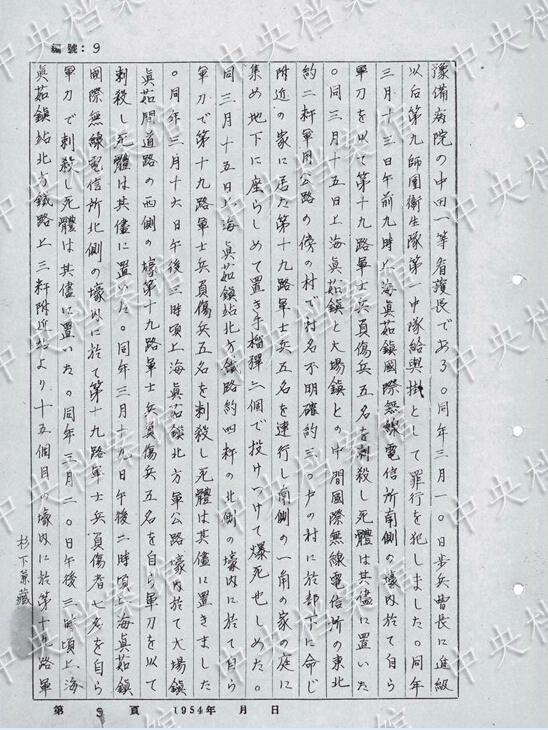 編號：9
豫備病院の中田一等看護長である。同年三月一〇日步兵曹長に進級
以后第九師團衞生隊第一中隊給與掛として罪行を犯しました。同年
三月十三日午前九時上海眞茹鎮國際無線電信所南側の壕内於て自ら
軍刀を以て第十九路軍士兵負傷兵五名を刺殺し死體は其儘に置いた
。同三月十五日上海眞茹鎮と大場鎮との中間國際無線電信所の東北
約二粁軍用公路の傍の村で村名不明確約三〇戸の村に於部下に命じ
附近の家に居た第十九路軍士兵五名を連行し南側の一角の家の庭に
集め地下に座らしめて置き手榴彈二個で投げつけて爆死せしめた。
同三月十五日上海眞茹鎮站北方鐵路約四粁の北側の壕内に於て自ら
軍刀で第十九路軍士兵負傷兵五名を刺殺し死體は其儘に置きました
。同年三月十六日午後三時頃上海眞茹鎮北方軍公路壕内於て大場鎮
眞茹間道路の西側の壕第十九路軍士兵負傷兵五名を自ら軍刀を以て
刺殺し死體は其儘に置いた。同年三月十九日午後二時頃上海眞茹鎮
國際無線電信所北側の壕内に於て第十九路軍士兵負傷者七名を自ら
軍刀で刺殺し死體は其儘に置いた。同年三月二〇日午後三時頃上海
眞茹鎮站北方鐵路上三粁附近站より十五個目の壕内に於第十九路軍
杉下兼藏
第 9 頁 1954年 月 日
中央档案馆